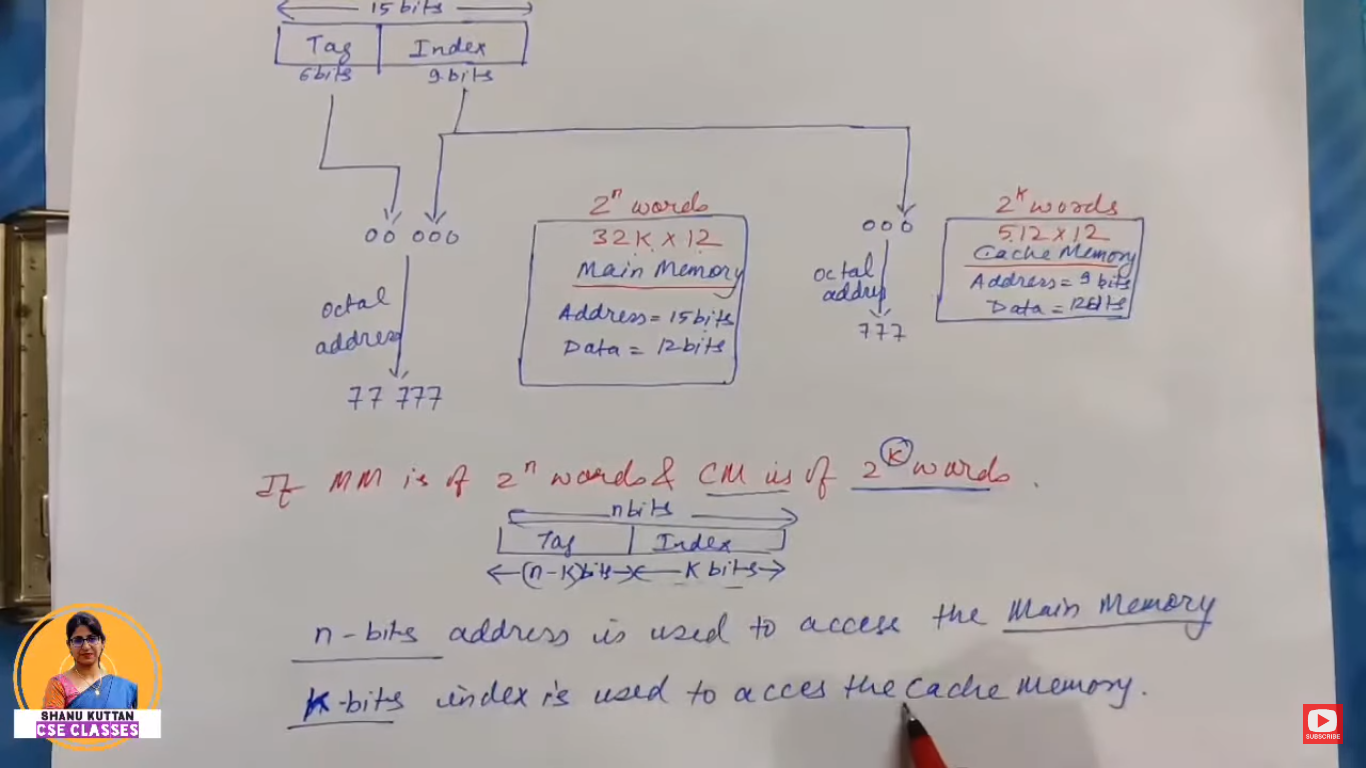 15 bits
Tag Index
6bits 9bits
00 000
octal
address
77 777
2^n words
32K x 12
Main Memory
Address = 15bits
Data = 12bits
000
octal
addres
777
2^k words
512 x 12
Cache Memory
Address = 9 bits
Data = 12bits
If MM is of 2^n words & CM is of 2^k words.
n bits
Tag Index
(n-k)bits k bits
n-bits address is used to access the Main Memory
k-bits index is used to acces the cache memory.
SHANU KUTTAN
CSE CLASSES
SUBSCRIBE